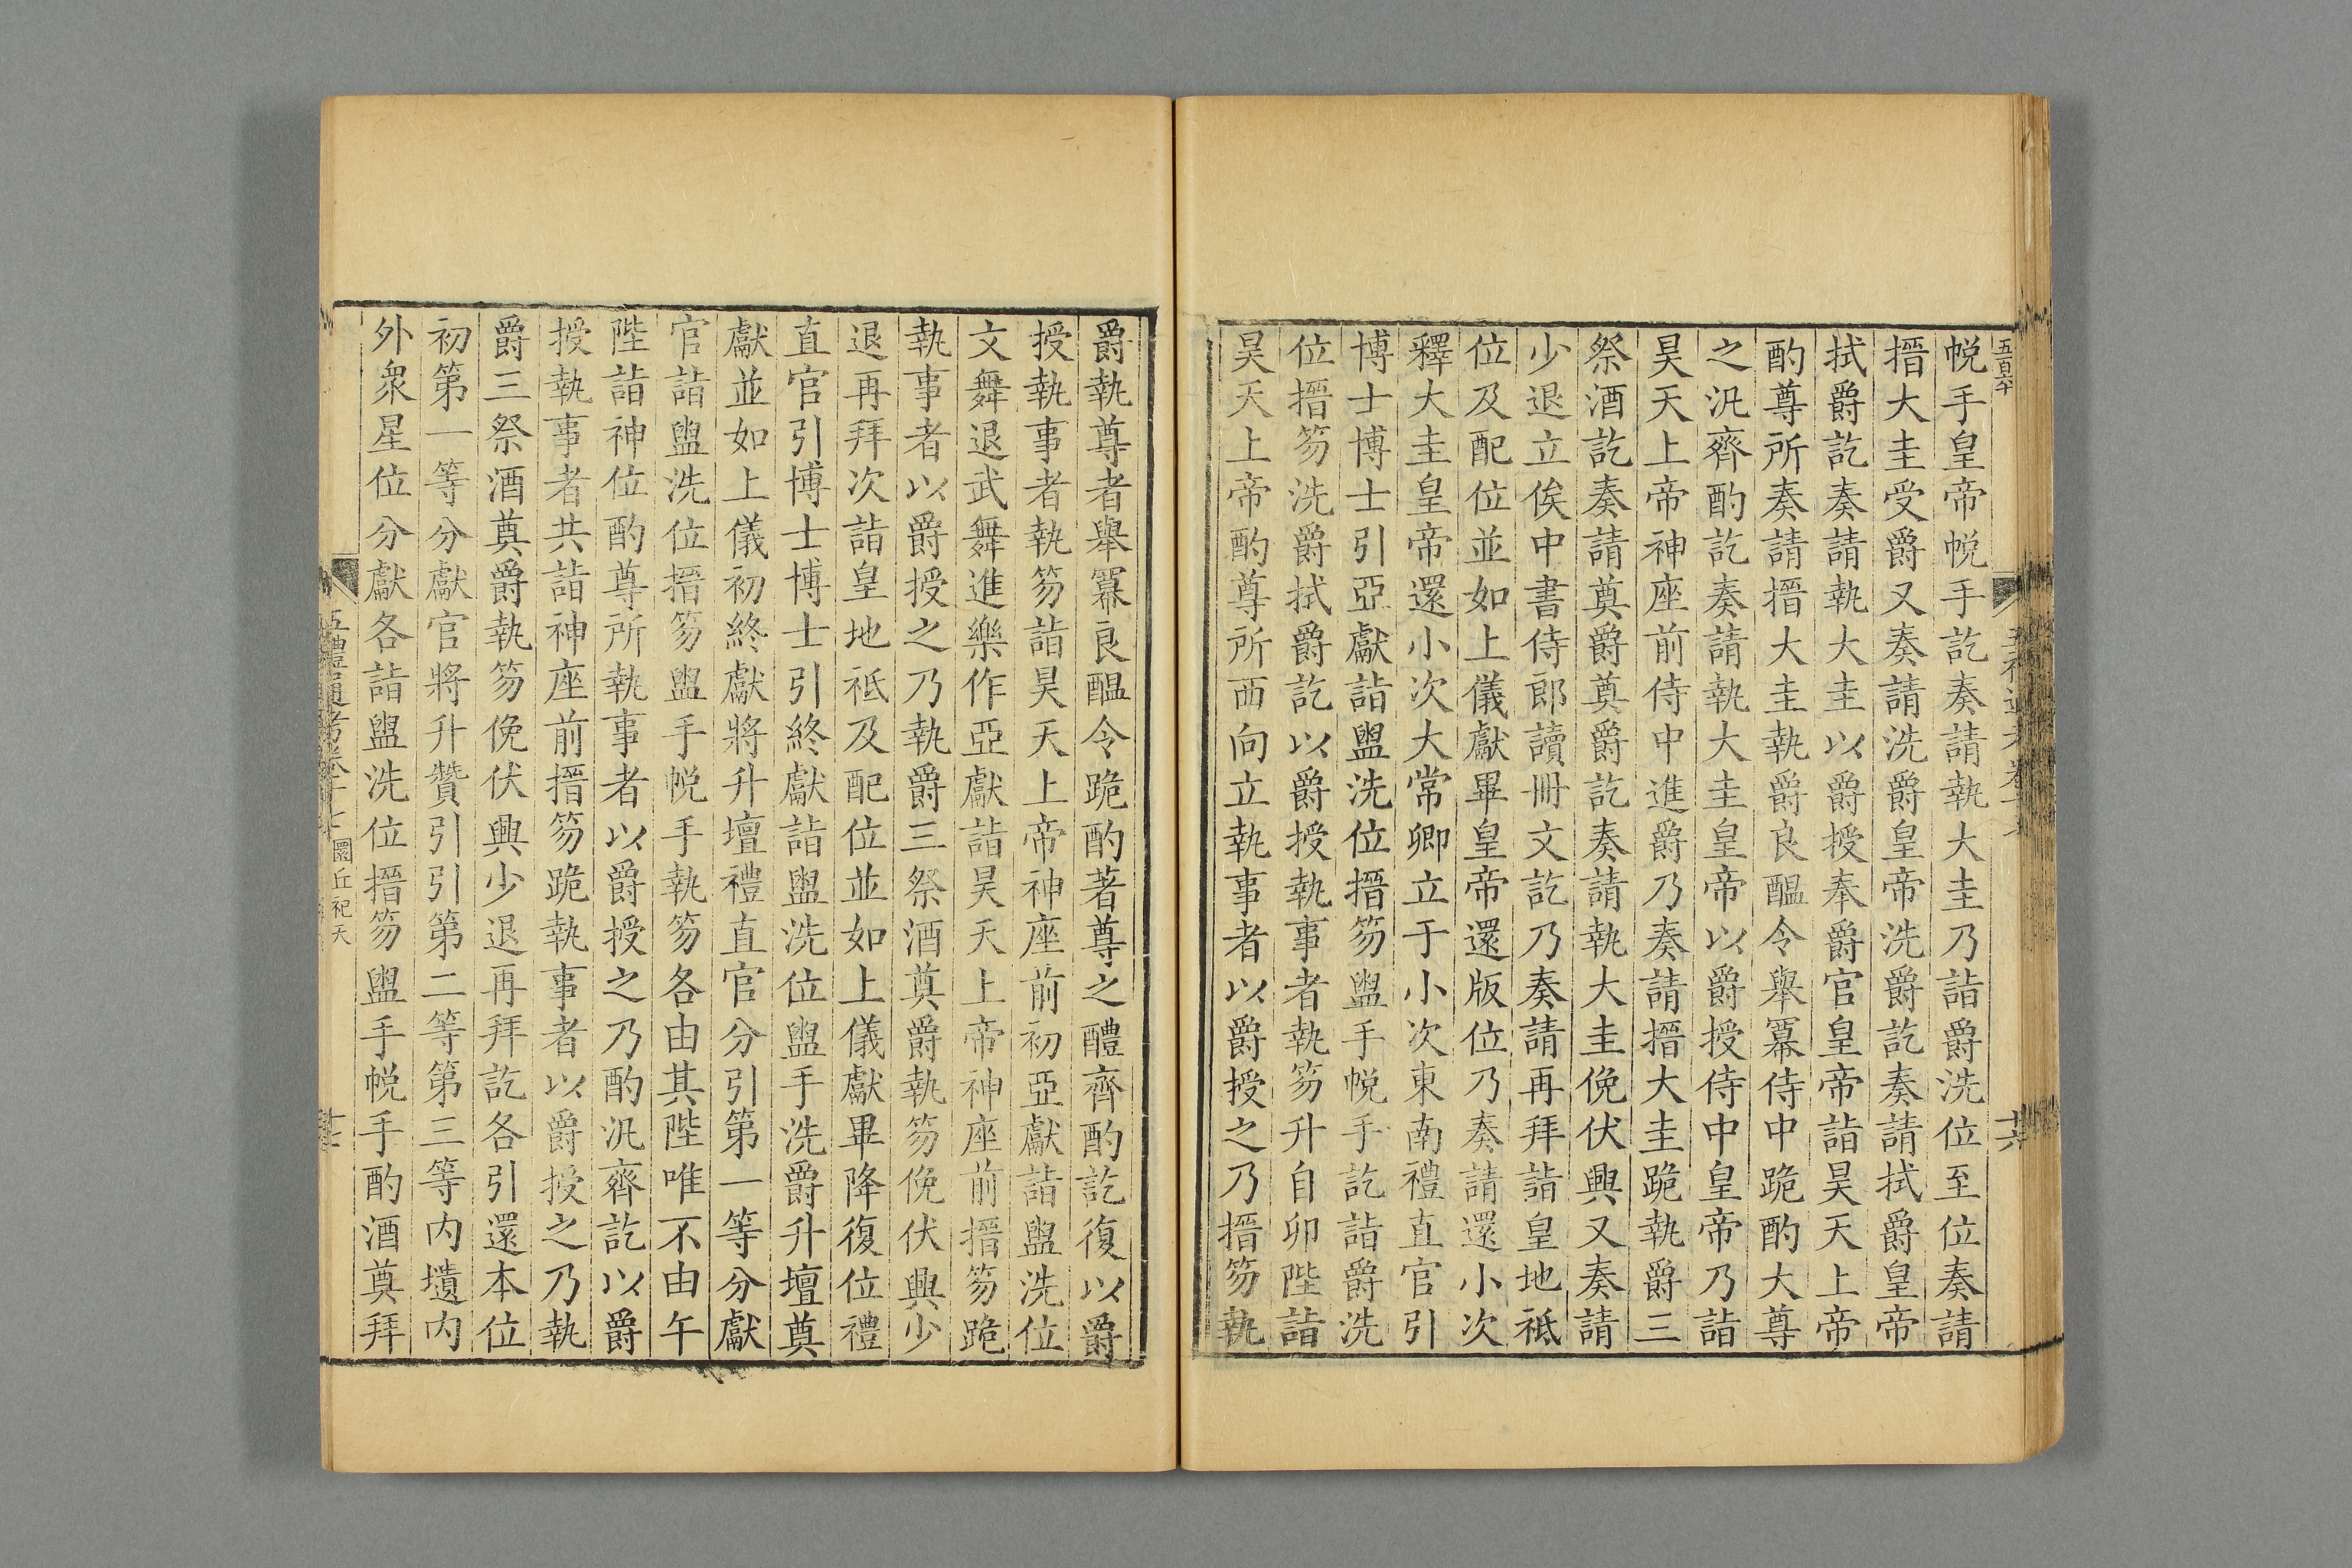 五百六十
十六
帨手皇帝帨手訖奏請執大圭乃詣爵洗位至位奏請
搢大圭受爵又奏請洗爵皇帝洗爵訖奏請拭爵皇帝
拭爵訖奏請執大圭以爵授奉爵官皇帝詣昊天上帝
酌尊所奏請搢大圭執爵良醖令舉冪侍中跪酌大尊
之汎齊酌訖奏請執大圭皇帝以爵授侍中皇帝乃詣
昊天上帝神座前侍中進爵乃奏請搢大圭跪執爵三
祭酒訖奏請奠爵奠爵訖奏請執大圭俛伏興又奏請
少退立俟中書侍郎讀冊文訖乃奏請再拜詣皇地祗
位及配位並如上儀獻畢皇帝還版位乃奏請還小次
釋大圭皇帝還小次大常卿立于小次東南禮直官引
博士博士引亞獻詣盥洗位搢笏盥手帨手訖詣爵洗
位搢笏洗爵拭爵訖以爵授執事者執笏升自卯陛詣
昊天上帝酌尊所西向立執事者以爵授之乃搢笏執
爵執尊者舉冪良醖令跪酌著尊之醴齊酌訖復以爵
授執事者執笏詣昊天上帝神座前初亞獻詣盥洗位
文舞退武舞進樂作亞獻詣昊天上帝神座前搢笏跪
執事者以爵授之乃執爵三祭酒奠爵執笏俛伏興少
退再拜次詣皇地祗及配位並如上儀獻畢降復位禮
直官引博士博士引終獻詣盥洗位盥手洗爵升壇奠
獻並如上儀初終獻將升壇禮直官分引第一等分獻
官詣盥洗位搢笏盥手帨手執笏各由其陛唯不由午
陛詣神位酌尊所執事者以爵授之乃酌汎齊訖以爵
授執事者共詣神座前搢笏跪執事者以爵授之乃執
爵三祭酒奠爵執笏俛伏興少退再拜訖各引還本位
初第一等分獻官將升贊引引第二等第三等内壝内
外衆星位分獻各詣盥洗位搢笏盥手帨手酌酒奠拜
五禮通考卷十七 圜丘祀天 十七